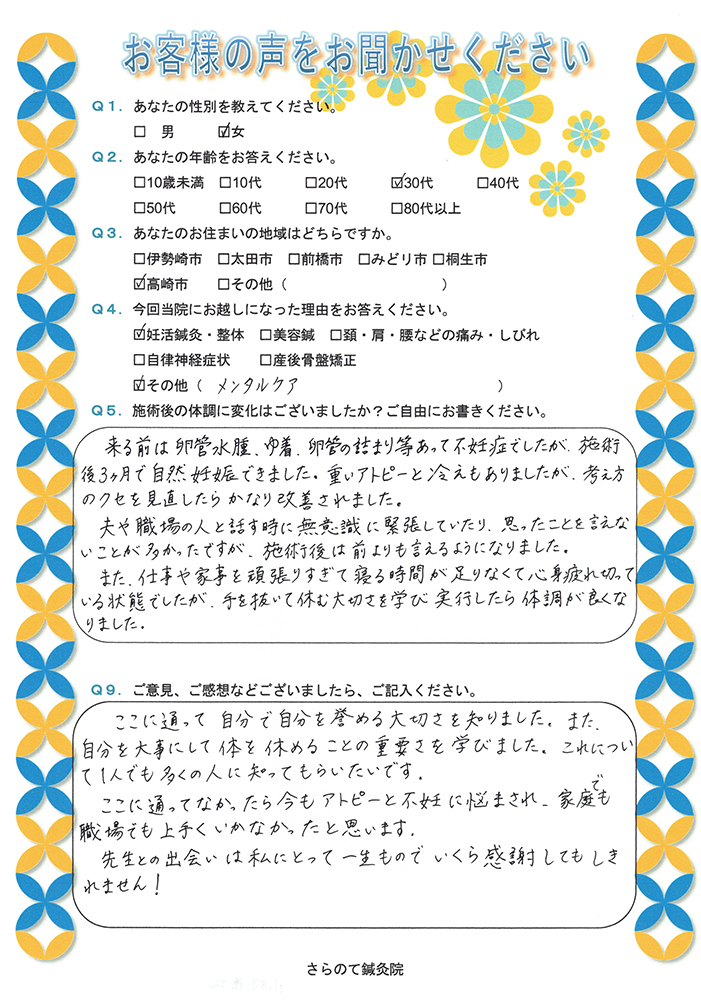 お客様の声をお聞かせください
Q1. あなたの性別を教えてください。
□ 男 ☑女
Q2. あなたの年齢をお答えください。
□10歳未満 □10代 □20代 ☑30代 □40代
□50代 □60代 □70代 □80代以上
Q3. あなたのお住まいの地域はどちらですか。
□伊勢崎市 □太田市 □前橋市 □みどり市 □桐生市
☑高崎市 □その他（ ）
Q4. 今回当院にお越しになった理由をお答えください。
☑妊活鍼灸・整体 □美容鍼 □頚・肩・腰などの痛み・しびれ
□自律神経症状 □産後骨盤矯正
☑その他（ メンタルケア ）
Q5. 施術後の体調に変化はございましたか？ご自由にお書きください。
来る前は卵管水腫、ゆ着、卵管の詰まり等あって不妊症でしたが、施術
後3ヶ月で自然妊娠できました。重いアトピーと冷えもありましたが、考え方
のクセを見直したらかなり改善されました。
夫や職場の人と話す時に無意識に緊張していたり、思ったことを言えな
いことが多かったですが、施術後は前よりも言えるようになりました。
また、仕事や家事を頑張りすぎて寝る時間が足りなくて心身疲れ切って
いる状態でしたが、手を抜いて休む大切さを学び実行したら体調が良くな
りました。
Q9. ご意見、ご感想などございましたら、ご記入ください。
ここに通って自分で自分を誉める大切さを知りました。また、
自分を大事にして体を休めることの重要さを学びました。これについ
て1人でも多くの人に知ってもらいたいです。
ここに通ってなかったら今もアトピーと不妊に悩まされ、家庭でも
職場でも上手くいかなかったと思います。
先生との出会いは私にとって一生ものでいくら感謝してもしき
れません！
さらのて鍼灸院